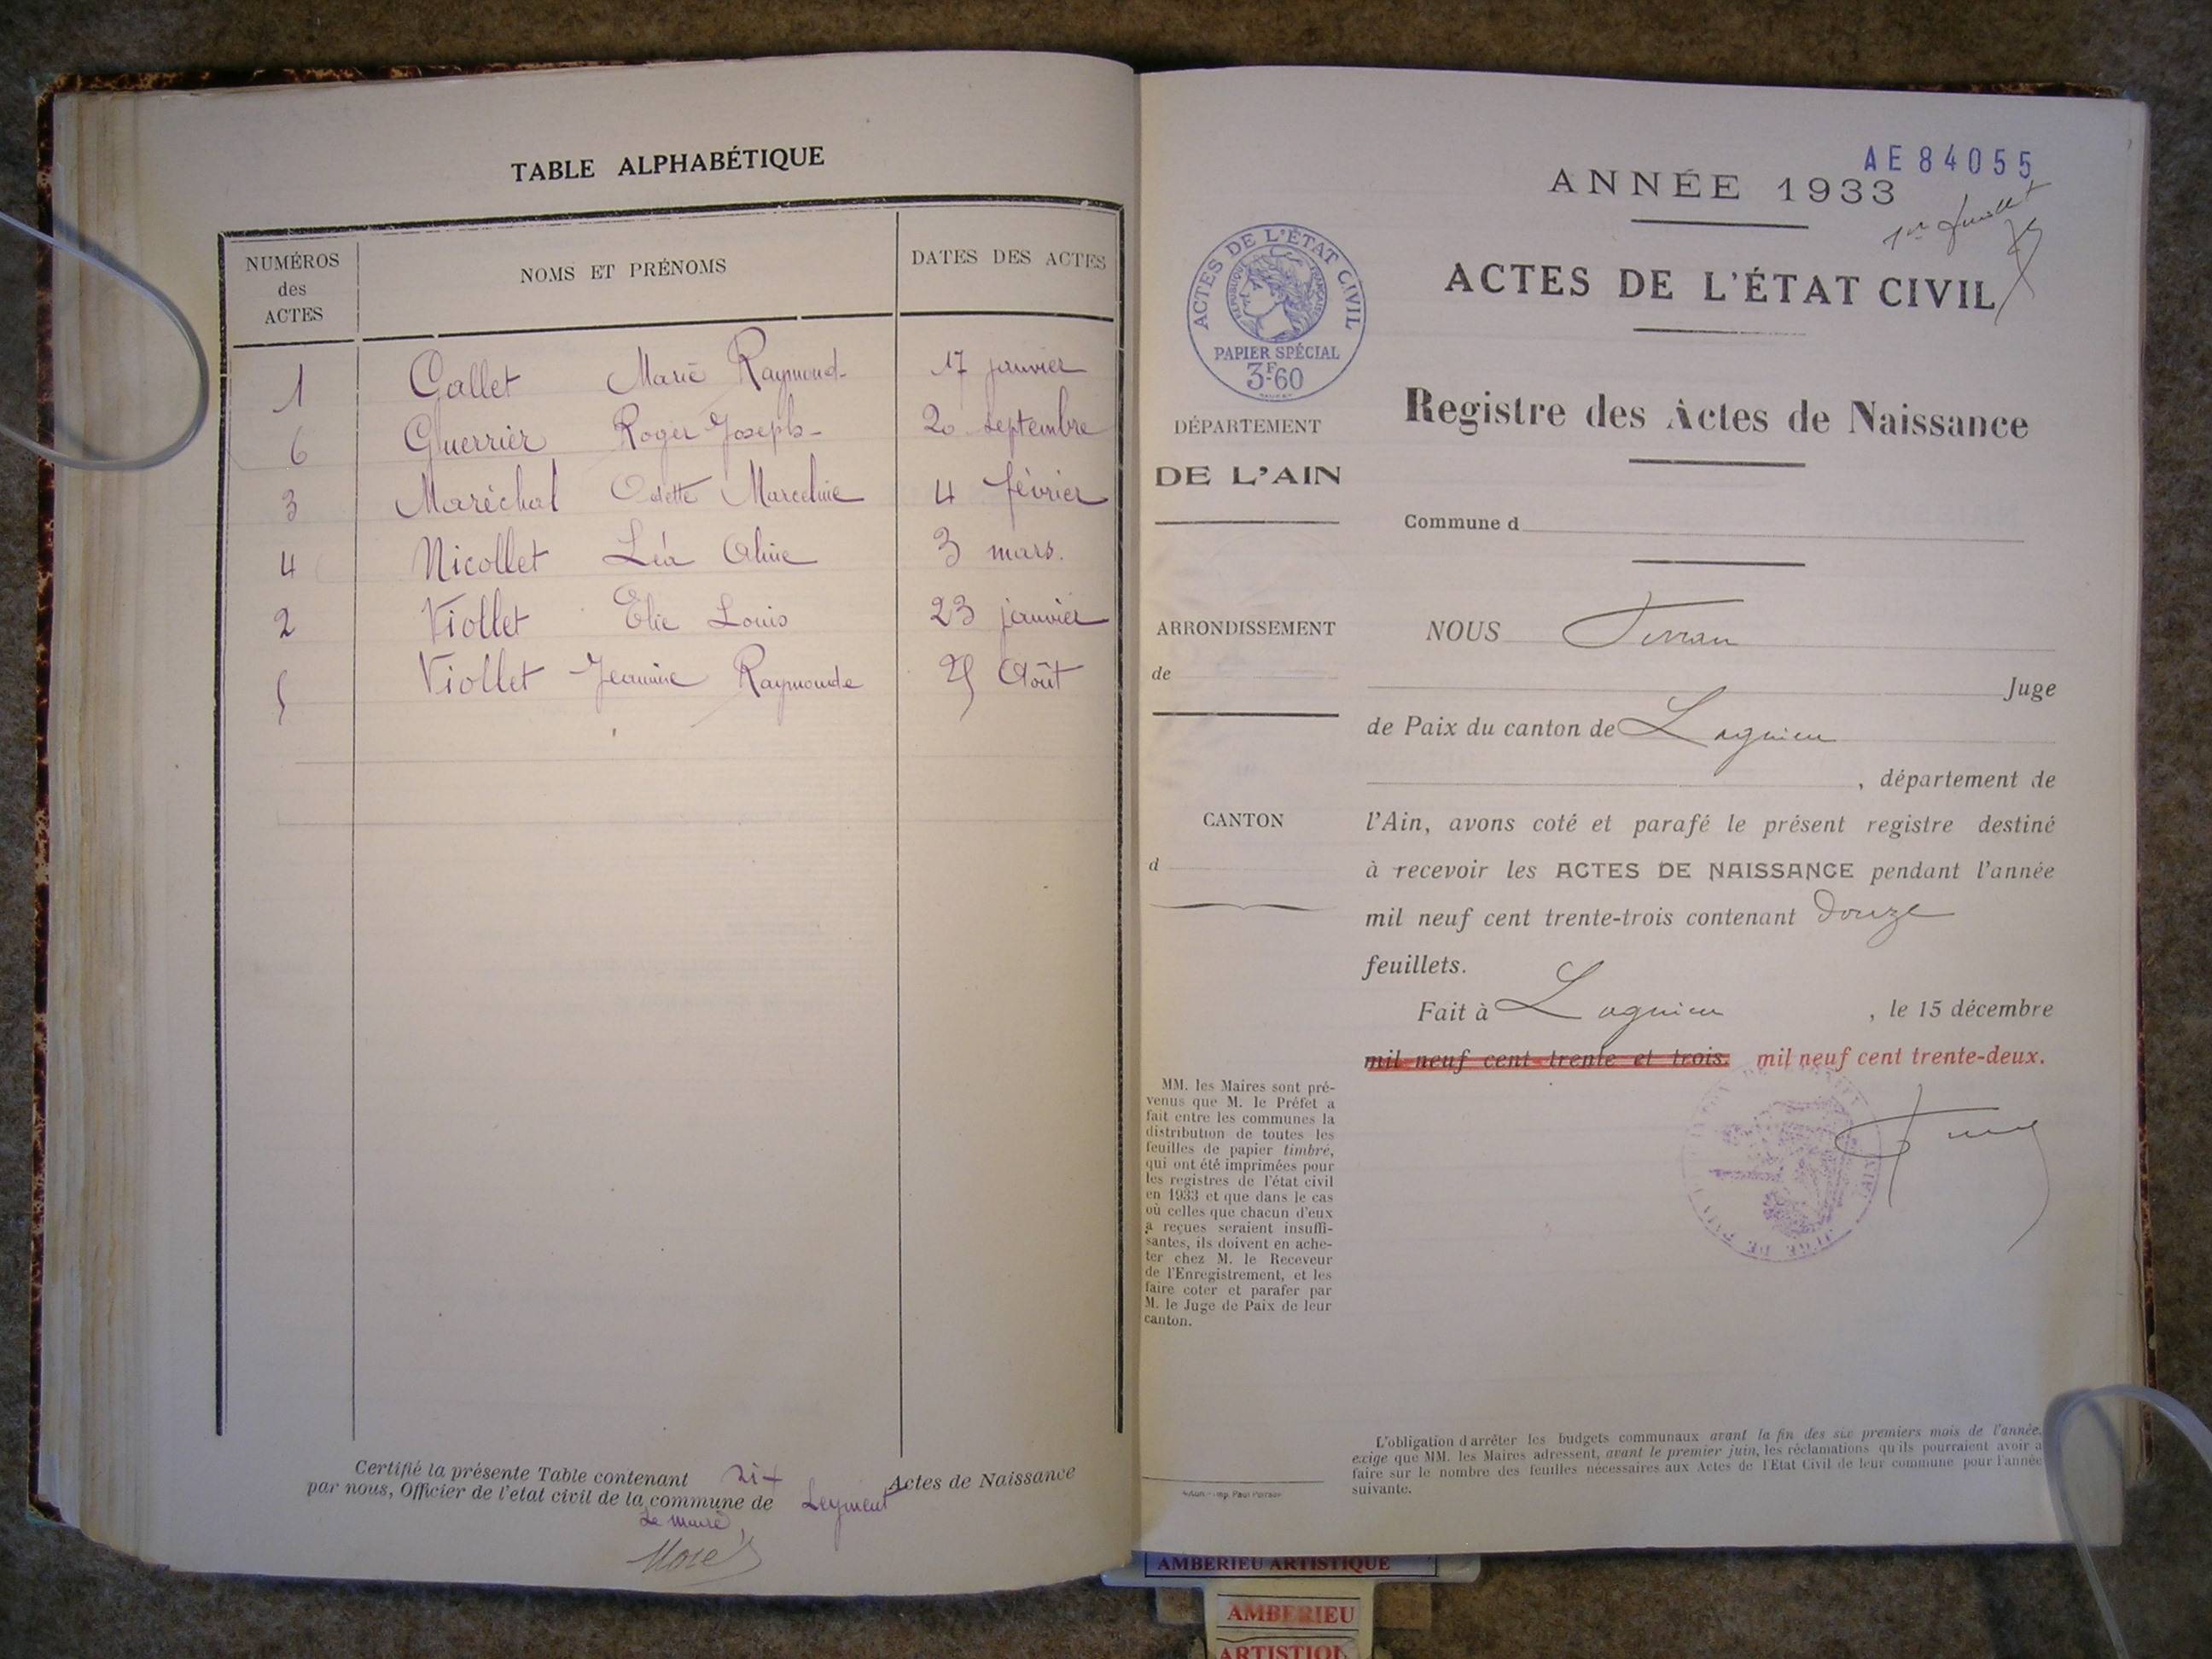 TABLE ALPHABÉTIQUE
NUMÉROS des ACTES NOMS ET PRÉNOMS DATES DES ACTES
1 Gallet Marie Raymond 17 janvier
6 Guerrier Roger Joseph 20 septembre
3 Maréchal Odette Marceline 4 février
4 Nicollet Léa Aline 3 mars.
2 Viollet Elie Louis 23 janvier
5 Viollet Jeannine Raymonde 25 Août
Certifié la présente Table contenant six Actes de Naissance
par nous, Officier de l'etat civil de la commune de Leyment
Le maire,
AE 84055
ANNÉE 1933
1er feuillet
ACTES DE L'ÉTAT CIVIL
ACTES DE L'ÉTAT CIVIL
RÉPUBLIQUE FRANÇAISE
PAPIER SPÉCIAL
3F60
Registre des Actes de Naissance
DÉPARTEMENT
DE L'AIN
Commune d
ARRONDISSEMENT
de
NOUS
Juge
de Paix du canton de Lagnieu
, département de
CANTON
d
l'Ain, avons coté et parafé le présent registre destiné
à recevoir les ACTES DE NAISSANCE pendant l'année
mil neuf cent trente-trois contenant douze
feuillets.
Fait à Lagnieu , le 15 décembre
mil neuf cent trente et trois. mil neuf cent trente-deux.
MM. les Maires sont pré-
venus que M. le Préfet a
fait entre les communes la
distribution de toutes les
feuilles de papier timbré,
qui ont été imprimées pour
les registres de l'état civil
en 1933 et que dans le cas
où celles que chacun d'eux
a reçues seraient insuffi-
santes, ils doivent en ache-
ter chez M. le Receveur
de l'Enregistrement, et les
faire coter et parafer par
M. le Juge de Paix de leur
canton.
L'obligation d'arrêter les budgets communaux avant la fin des six premiers mois de l'année,
exige que MM. les Maires adressent, avant le premier juin, les réclamations qu'ils pourraient avoir à
faire sur le nombre des feuilles nécessaires aux Actes de l'Etat Civil de leur commune pour l'année
suivante.
AMBERIEU ARTISTIQUE
AMBERIEU